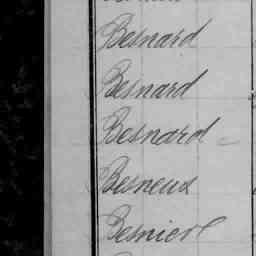 Besnard
Besnard
Besnard
Besneux
Besnier